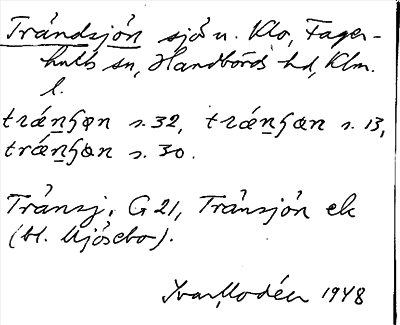 Trändsjön sjö u. Klo, Fager-
hults sn, Handbörds hd, Klm.
l.
trǽnʃøn s. 32, trǽnʃøn s. 13,
trǽnʃøn s. 30.
Tränsj. G 21, Tränsjön ek
(bl. Mjösebo).
Ivar Modéer 1948